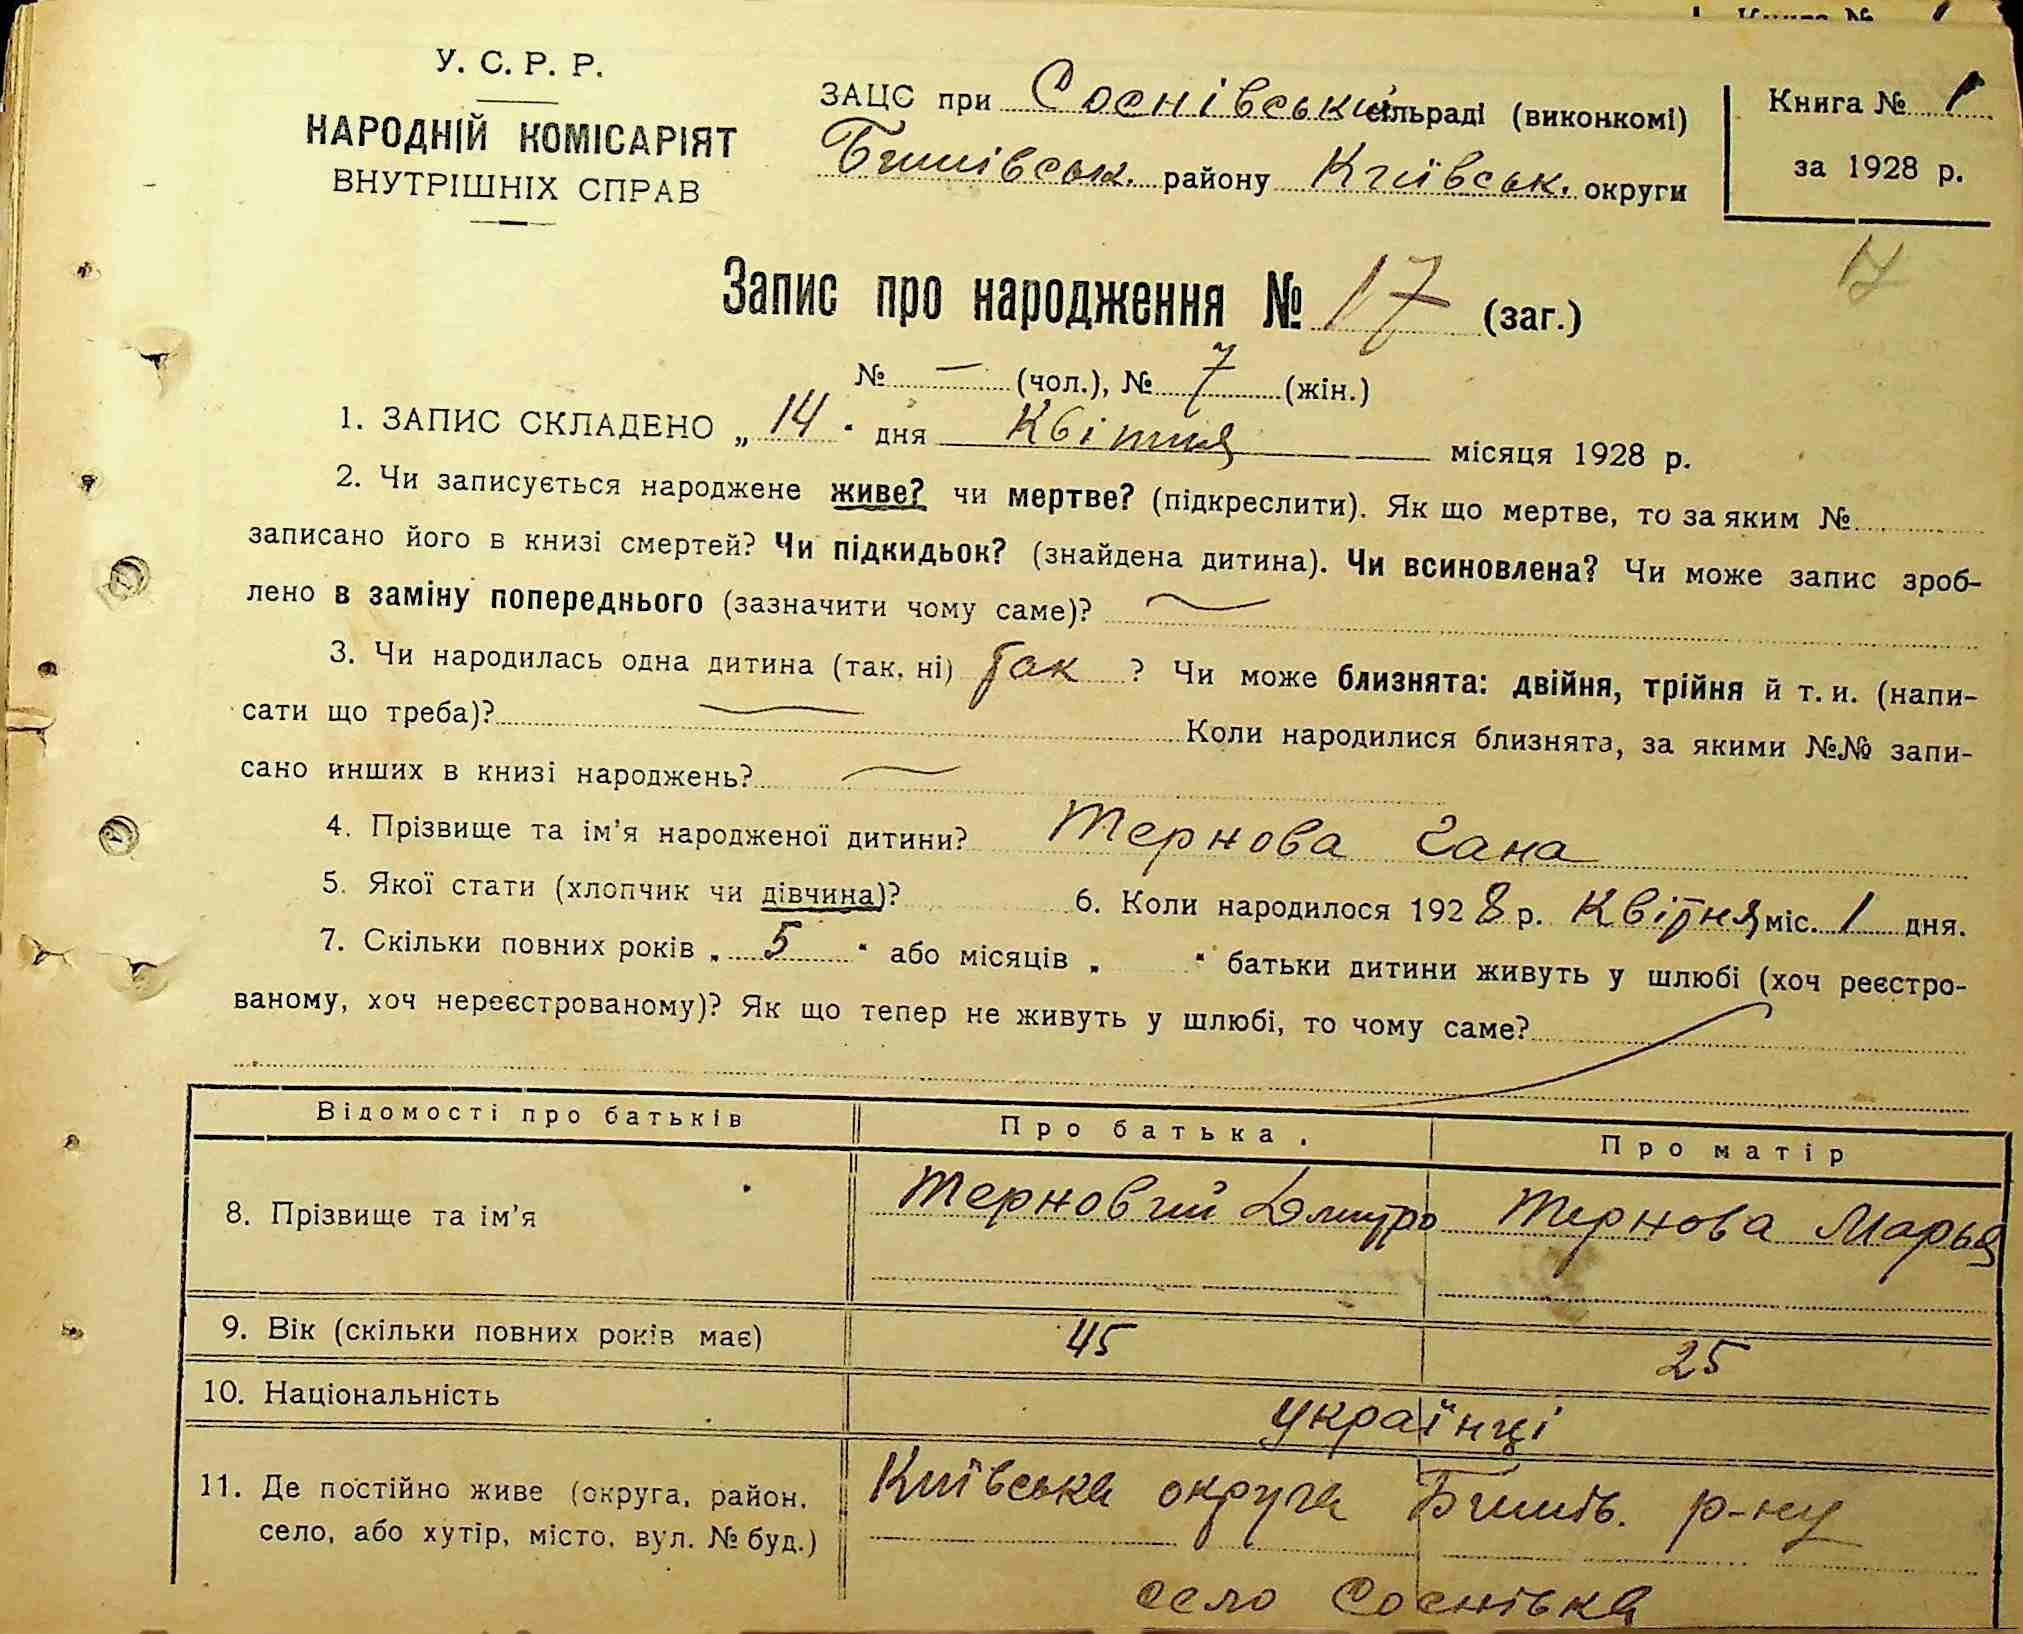 У. С. Р. Р.
НАРОДНІЙ КОМІСАРІЯТ
ВНУТРІШНІХ СПРАВ
ЗАЦС при Соснівський сільраді (виконкомі)
Бишівськ. району Київськ. округи
Книга № 1
за 1928 р.
17
Запис про народження № 17 (заг.)
№ — (чол.), № 7 (жін.)
1. ЗАПИС СКЛАДЕНО „ 14 “ дня Квітня місяця 1928 р.
2. Чи записується народжене живе? чи мертве? (підкреслити). Як що мертве, то за яким №
записано його в книзі смертей? Чи підкидьок? (знайдена дитина). Чи всиновлена? Чи може запис зроб-
лено в заміну попереднього (зазначити чому саме)? —
3. Чи народилась одна дитина (так, ні) Так ? Чи може близнята: двійня, трійня й т. и. (напи-
сати що треба)? — Коли народилися близнята, за якими №№ запи-
сано инших в книзі народжень? —
4. Прізвище та ім'я народженої дитини? Тернова Гана
5. Якої стати (хлопчик чи дівчина)? 6. Коли народилося 1928 р. Квітня міс. 1 дня.
7. Скільки повних років „ 5 “ або місяців „ “ батьки дитини живуть у шлюбі (хоч реєстро-
ваному, хоч нереєстрованому)? Як що тепер не живуть у шлюбі, то чому саме?
Відомості про батьків Про батька. Про матір
8. Прізвище та ім'я Терновий Дмитро Тернова Марья
9. Вік (скільки повних років має) 45 25
10. Національність українці
11. Де постійно живе (округа, район, Київська округа Бишів. р-ну
село, або хутір, місто, вул. № буд.)
село Соснівка